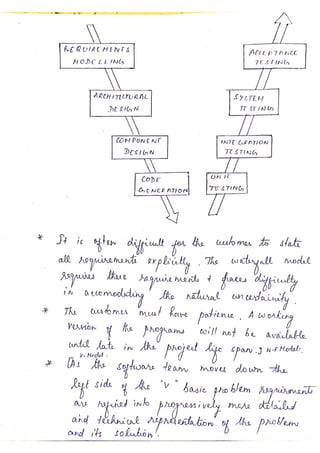 REQUIREMENTS
MODELLING
ACCEPTANCE
TESTING
ARCHITECTURAL
DESIGN
SYSTEM
TESTING
COMPONENT
DESIGN
INTEGRATION
TESTING
CODE
GENERATION
UNIT
TESTING
* It is often difficult for the customer to state
all requirements explicitly. The waterfall model
requires these requirements & faces difficulty
in accomodating the natural uncertainity.
* The customer must have patience. A working
version of the programs will not be available
until late in the project life span.
V. Model.
* As the software team moves down the
left side of the "V" basic problem requirements
are refined into progressively more detailed
and technical representation of the problem
and its solution.